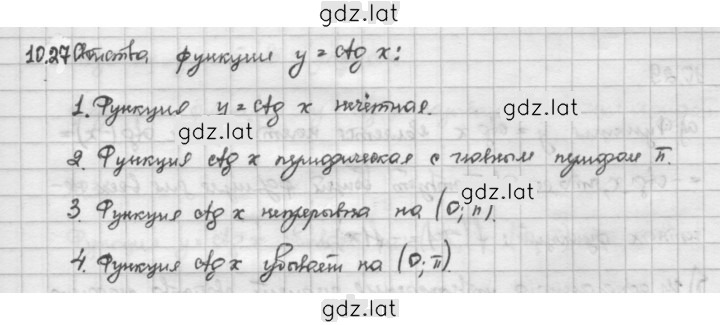 gdz.lat
10.27 Свойства функции y = ctg x:
1. Функция y = ctg x нечётная.
gdz.lat
gdz.lat
2. Функция ctg x периодическая с главным периодом π.
gdz.lat
3. Функция ctg x непрерывна на (0; π).
4. Функция ctg x убывает на (0; π).
gdz.lat